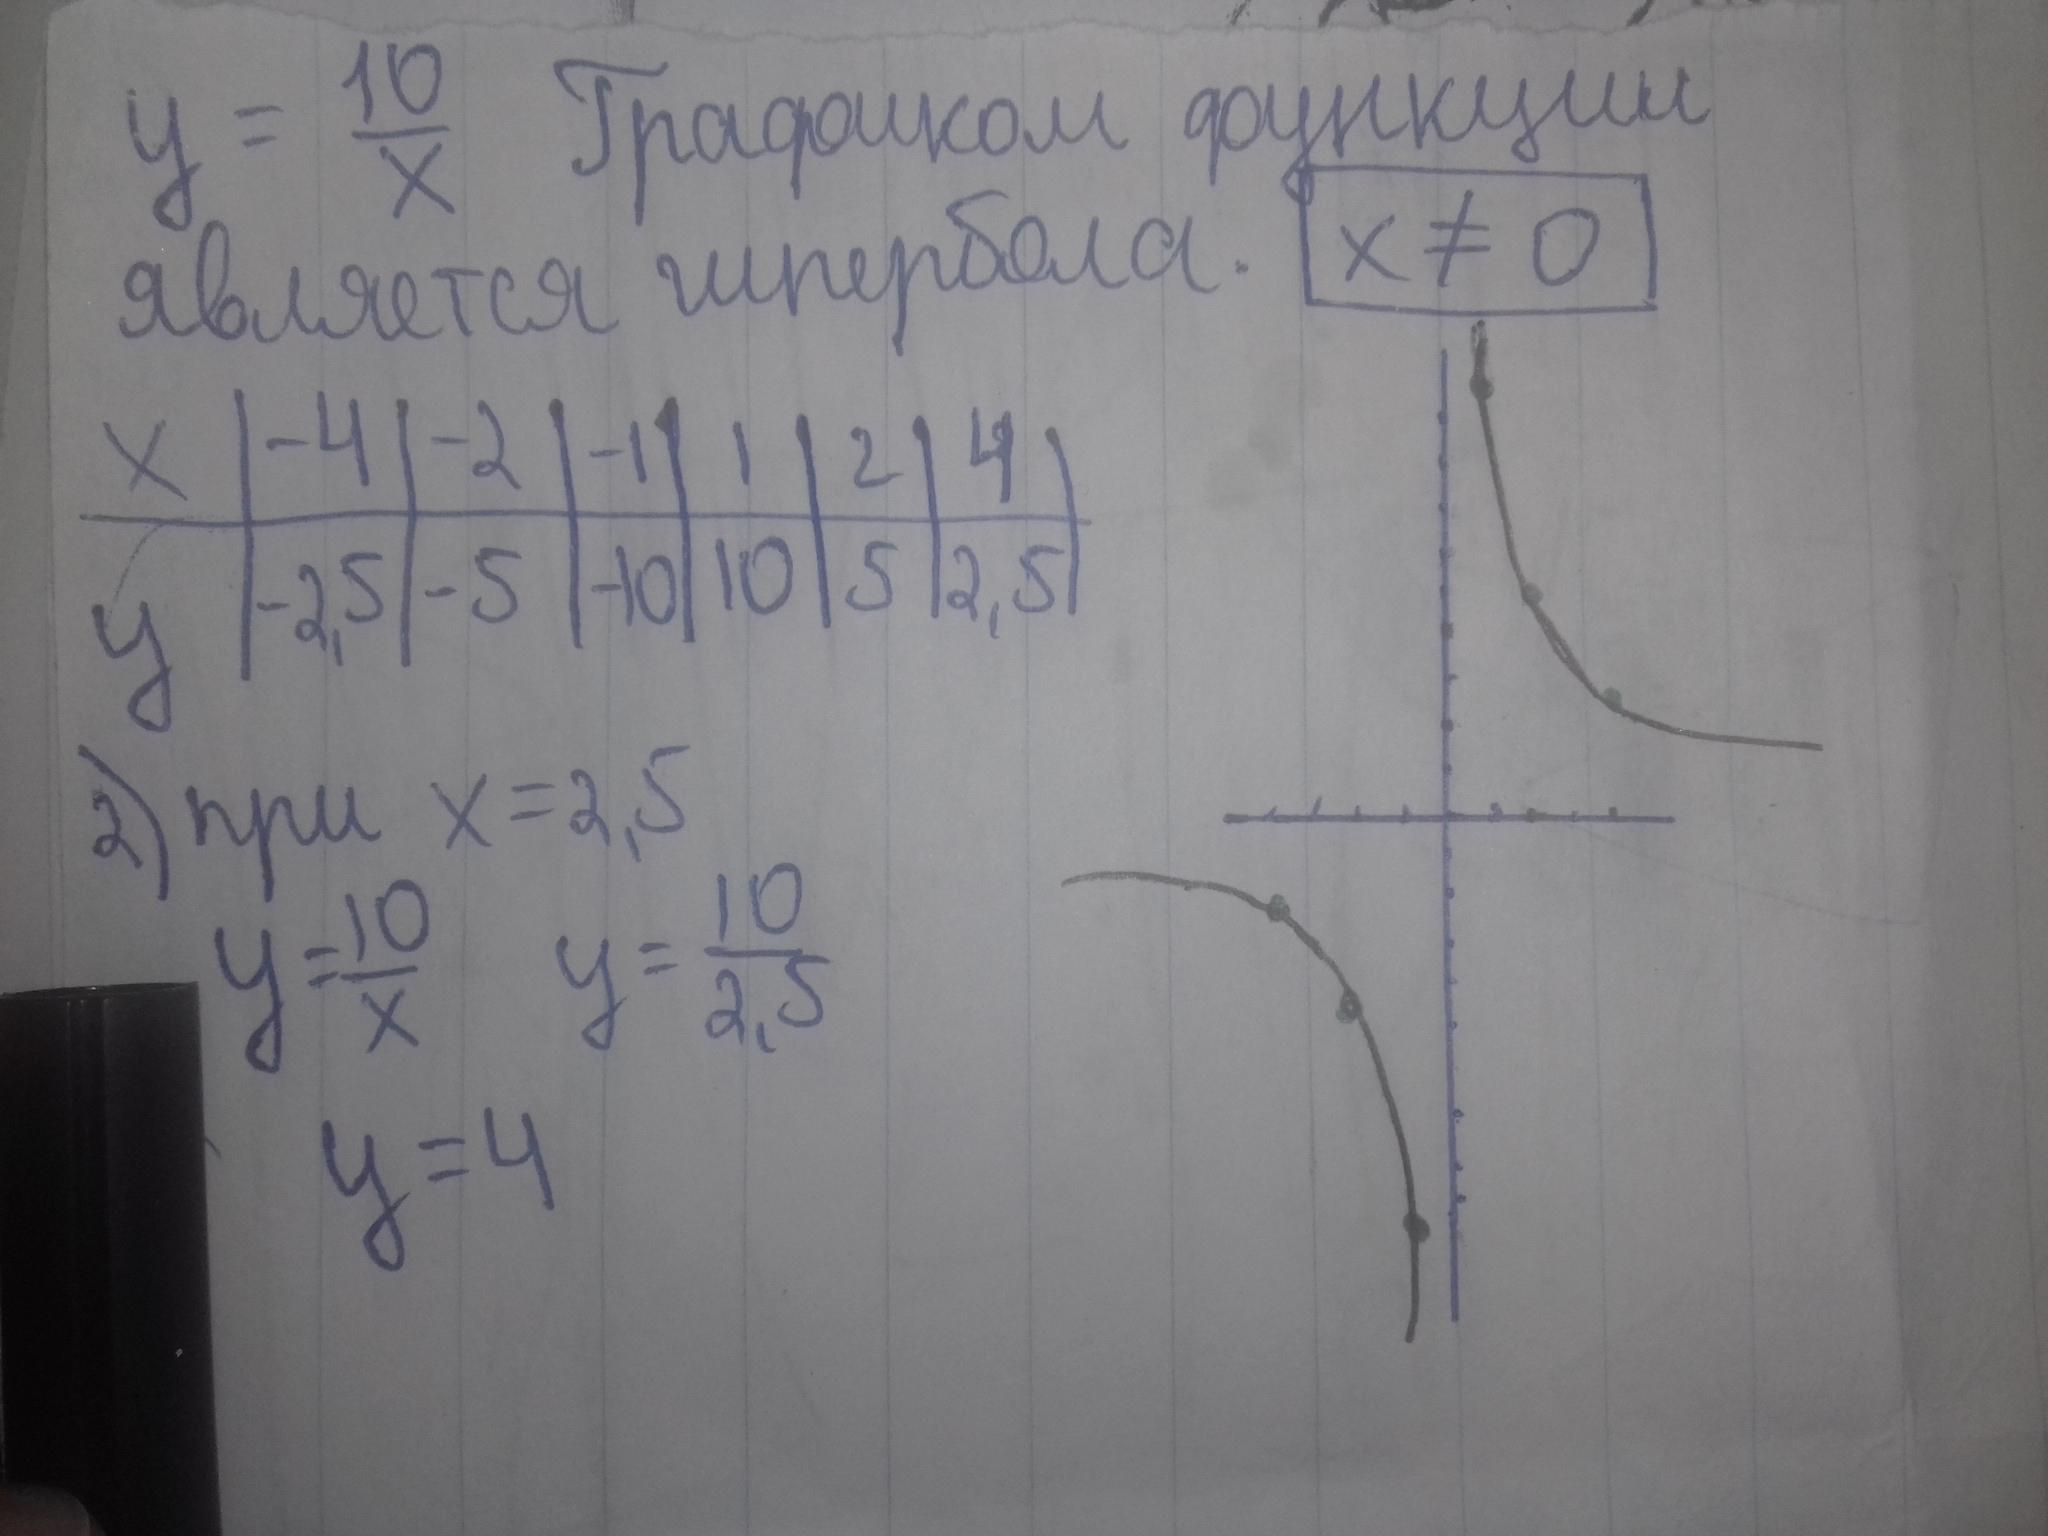 y = 10/x Графиком функции
является гипербола. x ≠ 0
x | -4 | -2 | -1 | 1 | 2 | 4 |
y | -2,5 | -5 | -10 | 10 | 5 | 2,5 |
2) при x = 2,5
y = 10/x y = 10/2,5
y = 4